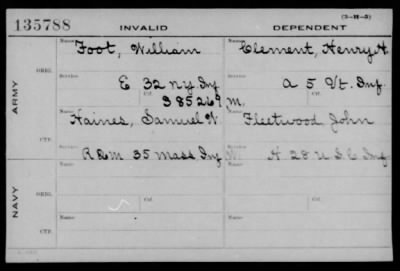 (3-H-3)
135788 INVALID DEPENDENT
Name: Foot, William Name: Clement, Henry A.
ARMY
ORIG. Service: E 32 N.Y. Inf Service: A 5 Vt. Inf.
Ctf. 385269 Ctf. M.
Name: Haines, Samuel N. Name: Fleetwood John
CTF. R & M 35 Mass Inf H 28 U.S.C. Inf
NAVY
Name: Name:
ORIG. Service: Ctf. Service: Ctf.
Name: Name:
CTF.